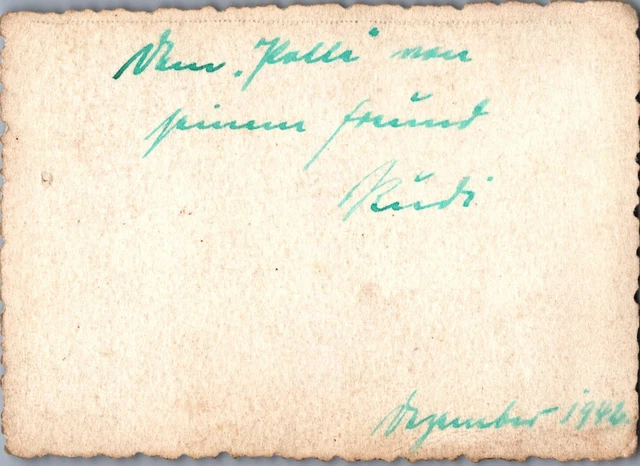 Dem „Polli“ von
seinem Freund
Rudi
Dezember 1942.